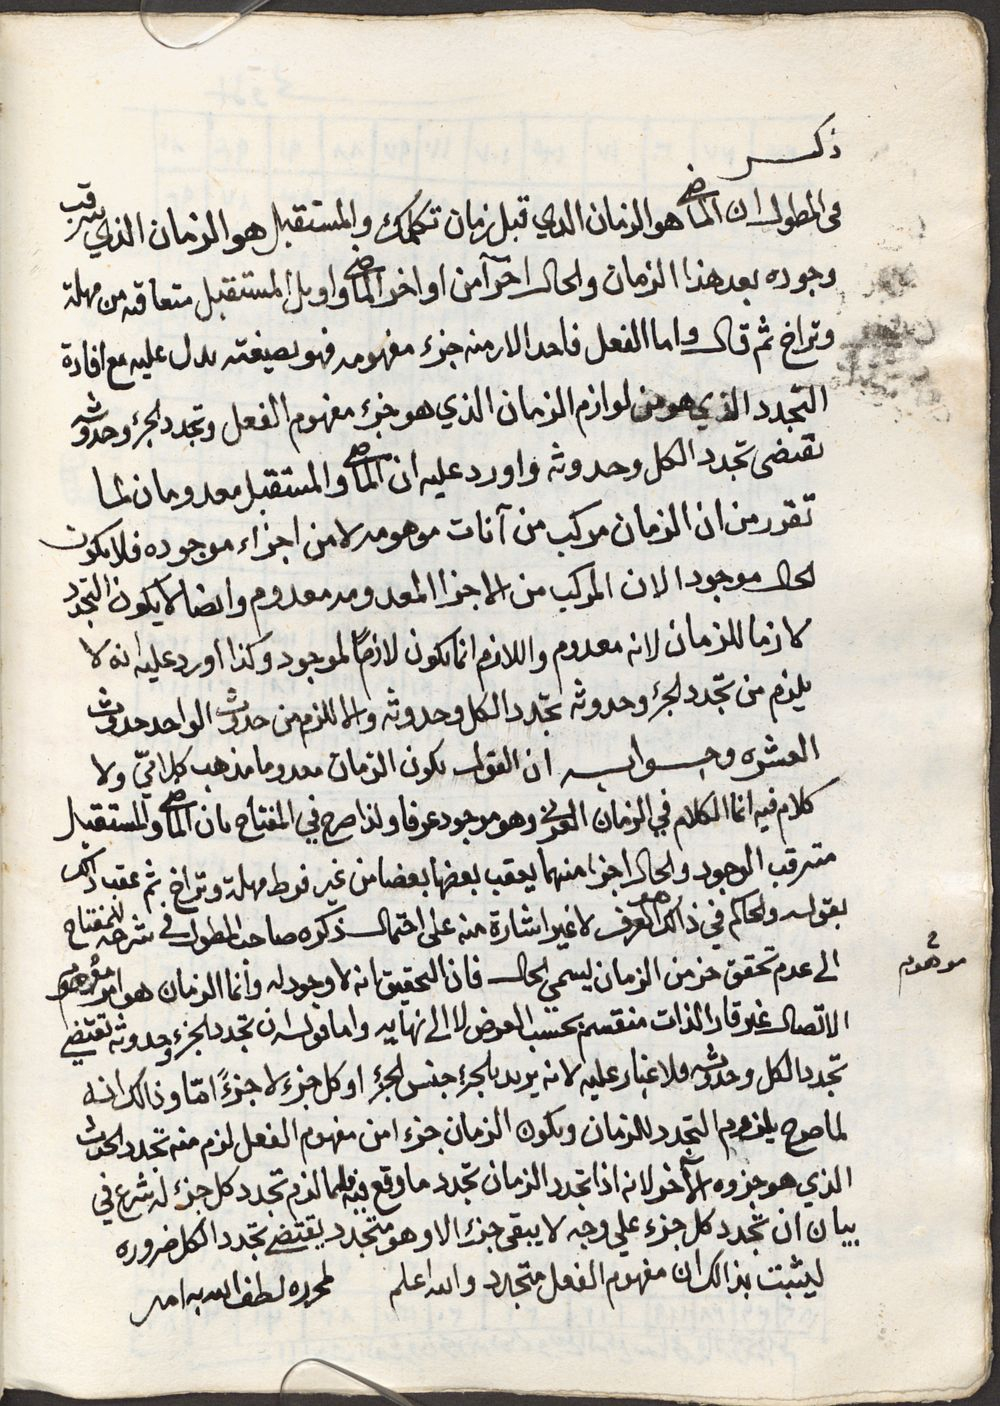 ذكـــر
في المطول ان الماضي هو الزمان الذي قبل زمان تكلمك والمستقبل هو الزمان الذي يترقب
وجوده بعد هذا الزمان والحال اجزآ من اواخر الماضي واوىل المستقبل متعاقبه من مهلة
وتراخ ثم قال واما الفعل فاحد الازمنه جزء مفهومه فهو بصيغته يدل عليه مع افادة
التجدد الذي هو من لوازم الزمان الذي هو جزء مفهوم الفعل وتجدد الجزء وحدوثه
يقتضى تجدد الكل وحدوثه واورد عليه ان الماضي والمستقبل معدومان لما
تقرر من ان الزمان مركب من آنات موهومه لا من اجزاء موجوده فلا يكون
الحال موجودا لان المركب من الاجزا المعدومه معدوم وايضا لا يكون التجدد
لازما للزمان لانه معدوم واللازم انما يكون لازمًا لموجود وكذا اورد عليه انه لا
يلزم من تجدد الجزء وحدوثه تجدد الكل وحدوثه والا للزم من حدوث الواحد حدوث
العشره وجـــوابـــه ان القول بكون الزمان معدوما مذهب كلاميّ ولا
كلام فيه انما الكلام في الزمان العرفي وهو موجود عرفا ولذا صرح في المفتاح بان الماضي والمستقبل
مترقب الوجود والحال اجزا منهما يعقب بعضها بعضا من غير فرط مهلة وتراخ ثم عقب ذالك
بقوله والحاكم في ذالك هو العرف لا غير اشارة منه على احتمال ذكره صاحب المطول في شرحه للمفتاح
الى عدم تحقق جزء من الزمان يسمى الحال فان التحقيق انه لا وجود له وانما الزمان هو امر موهوم
موهوم
الاتصال غير قار الذات منقسم بحسب العرض لا الى نهايه واما قوله ان تجدد الجزء وحدوثه يقتضي
تجدد الكل وحدوثه فلا غبار عليه لانه يريد بالجزء جنس الجزء او كل جزء لا جزءً امّا وذالك انه
لما صح يلزم التجدد للزمان وبكون الزمان جزءا من مفهوم الفعل لزم منه تجدد الحدث
الذي هو جزوه الآخر لانه اذا تجدد الزمان تجدد ما وقع فيه فلما لزم تجدد كل جزء له شرع في
بيان ان تجدد كل جزء علي وجه لا يبقى جزء الا وهو متجدد يقتضي تجدد الكل ضروره
ليثبت بذالك ان مفهوم الفعل متجدد والله اعلم لمحرره لطف الله به امين